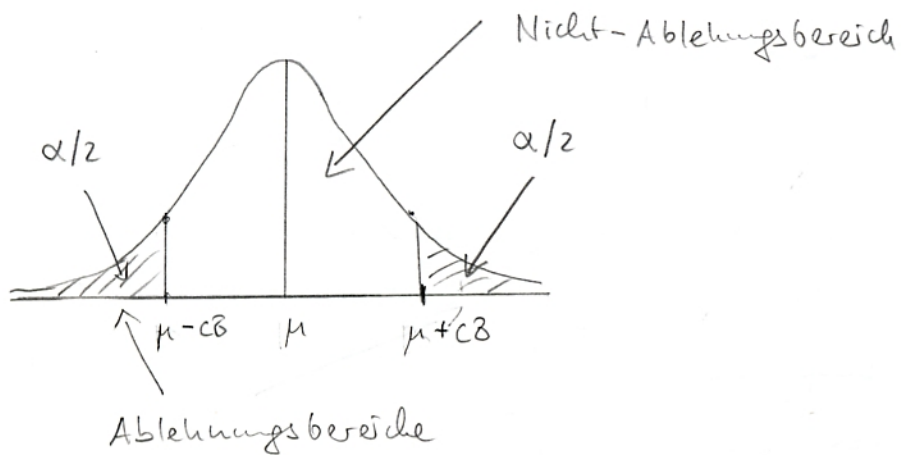 Nicht-Ablehungsbereich
α/2
α/2
μ-cσ
μ
μ+cσ
Ablehnungsbereiche